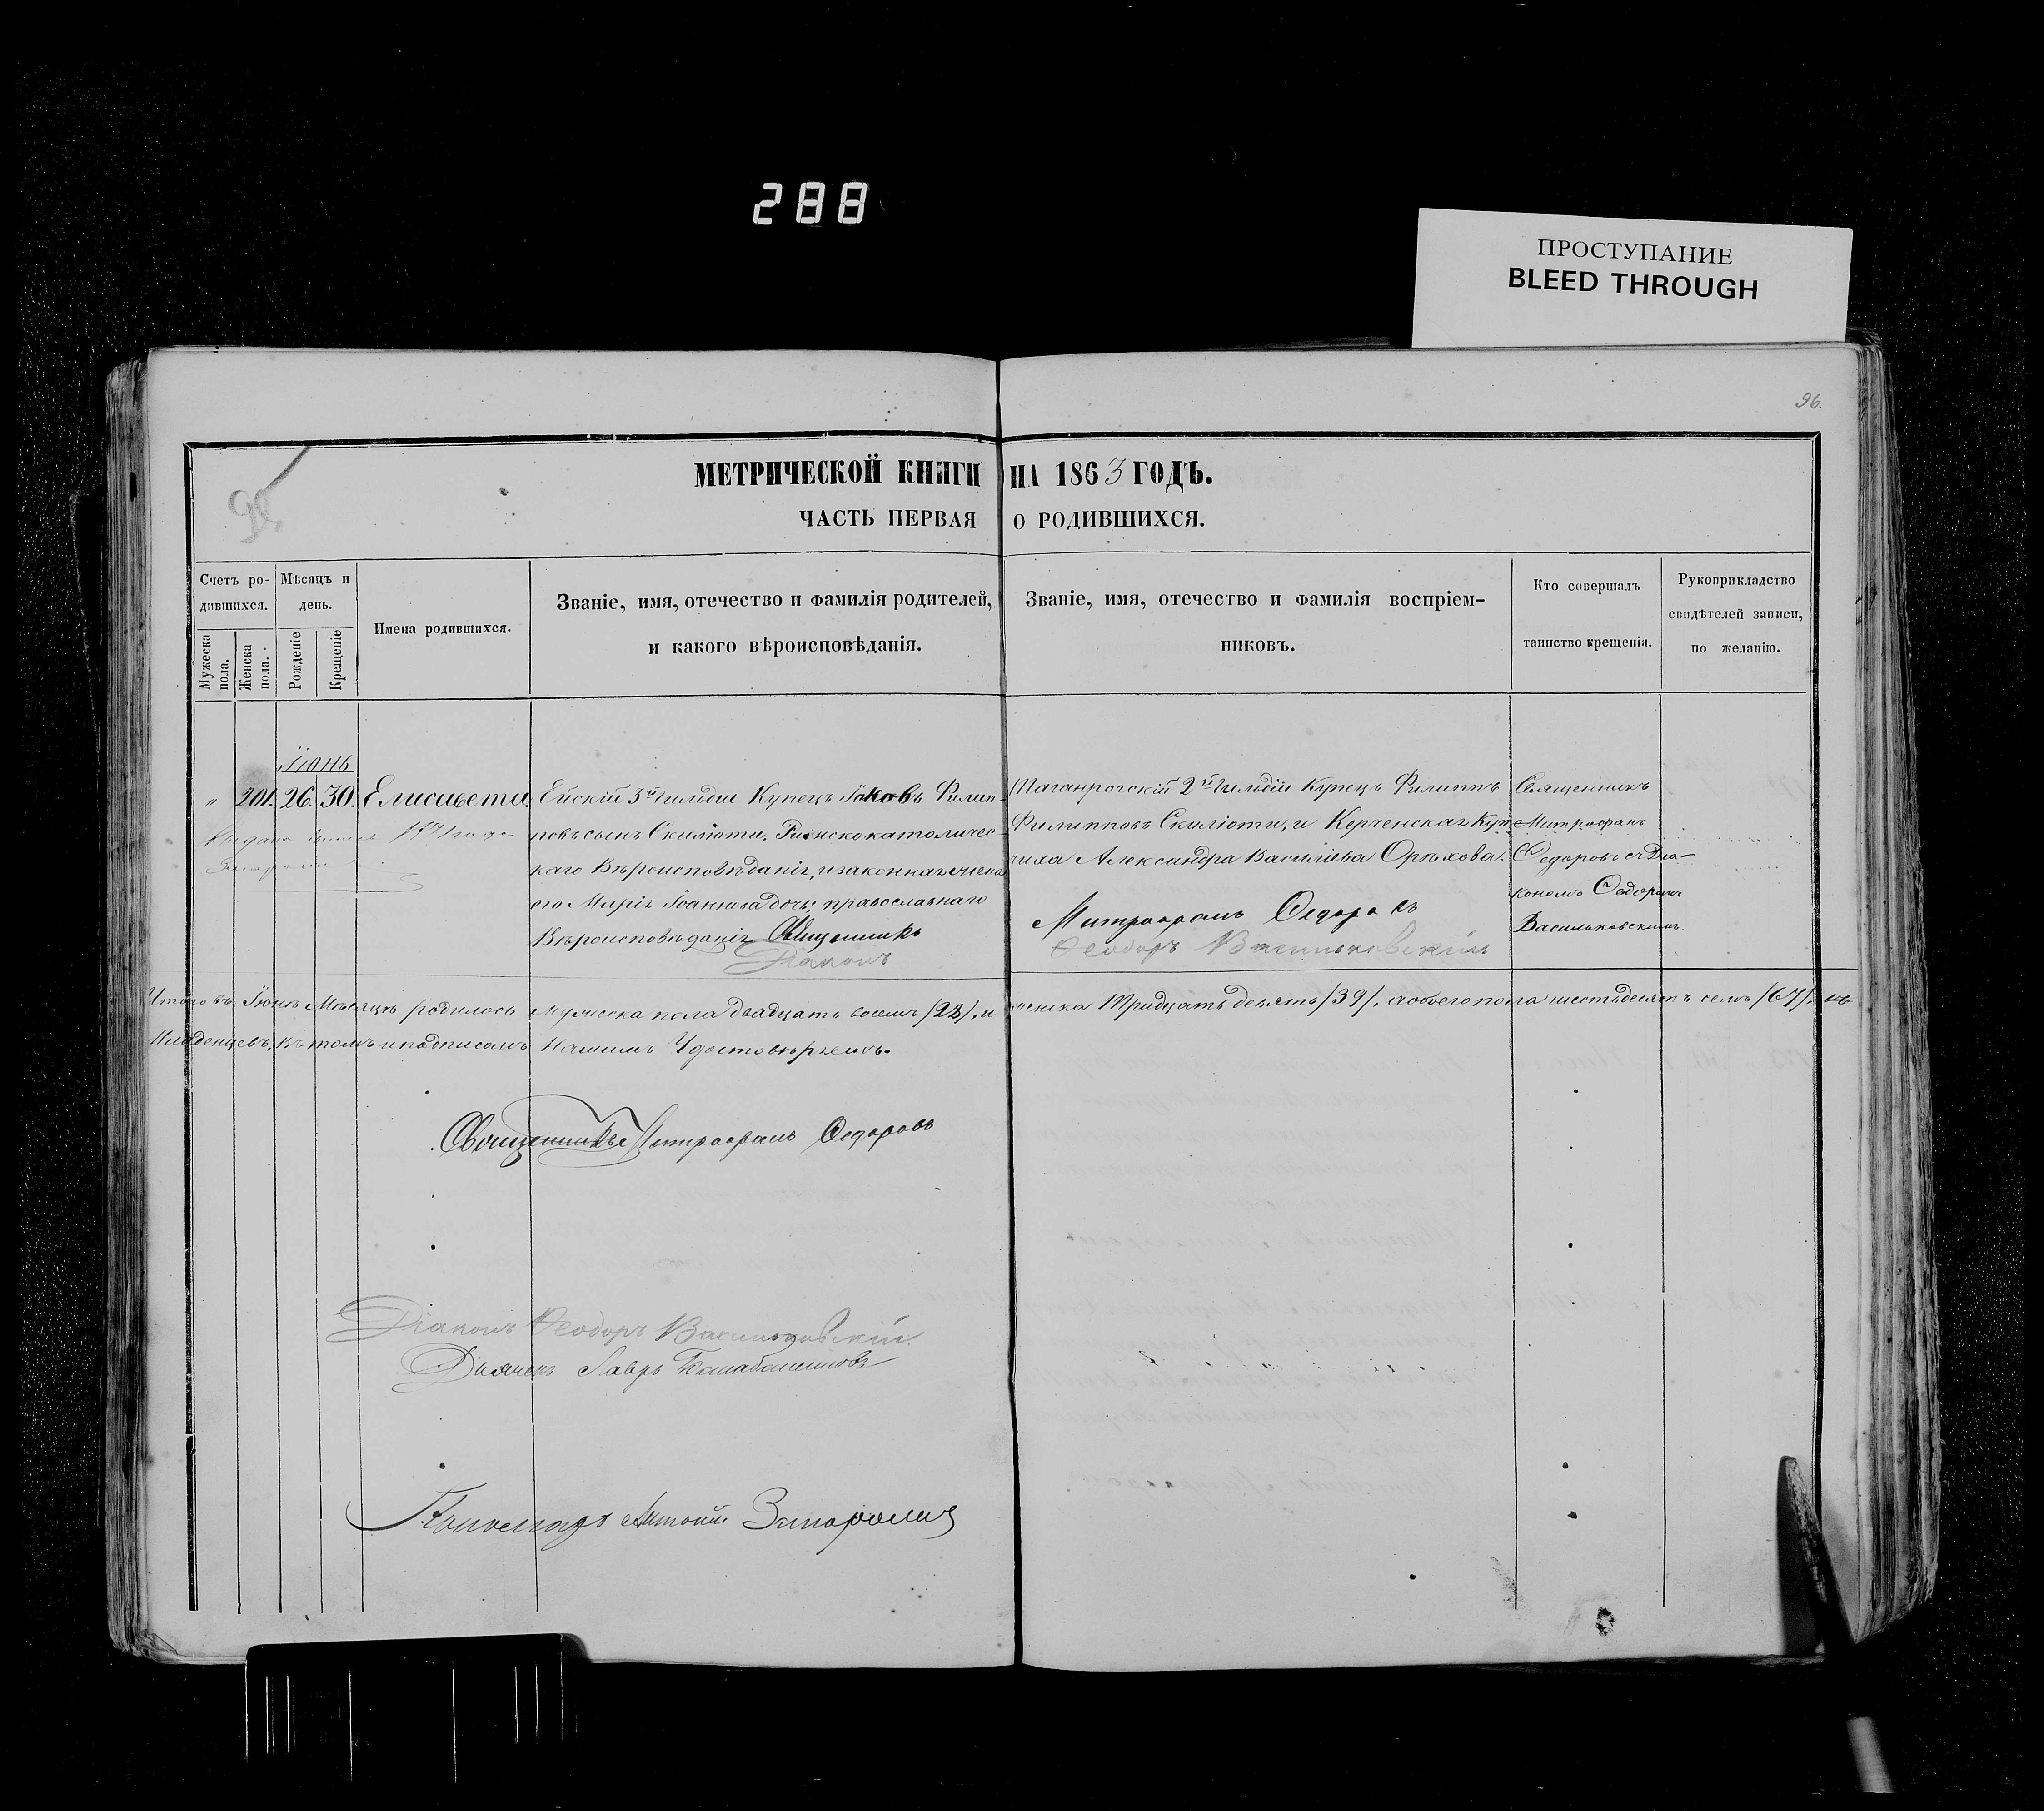 288
ПРОСТУПАНИЕ
BLEED THROUGH
96.
95
МЕТРИЧЕСКОЙ КНИГИ НА 1863 ГОДЪ.
ЧАСТЬ ПЕРВАЯ О РОДИВШИХСЯ.
Счетъ ро-
дившихся.
Мужеска
пола.
Женска
пола.
Мѣсяцъ и
день.
Рожденіе
Крещеніе
Имена родившихся.
Званіе, имя, отечество и фамилія родителей,
и какого вѣроисповѣданія.
Званіе, имя, отечество и фамилія воспріем-
никовъ.
Кто совершалъ
таинство крещенія.
Рукоприкладство
свидѣтелей записи,
по желанію.
Іюнь
" 201. 26. 30. Елисавета
Ейскій 3й Гильдіи Купецъ Іаковъ Филип-
повъ сынъ Скиліоти, Римскокатоличес-
каго Вѣроисповѣданія, и законная жена
его Марія Іоаннова дочь; православнаго
Вѣроисповѣданія Священникъ
Діаконъ
Таганрогскій 2й Гильдіи Купецъ Филиппъ
Филипповъ Скиліоти, и Керченская Куп-
чиха Александра Василіева Орѣхова.
Митрофанъ Федоровъ
Феодоръ Васильковскій
Священникъ
Митрофанъ
Федоровъ съ Діа-
кономъ Феодоромъ
Васильковскимъ.
Итого въ Іюнѣ Мѣсяцѣ родилось мужеска пола двадцать восемь /28/, и женска тридцать девять /39/, а обоего пола шестьдесятъ семь /67/
Младенцевъ, въ томъ и подписомъ Нашимъ Удостовѣряемъ.
Священникъ Митрофанъ Федоровъ
Діаконъ Феодоръ Васильковскій
Дьячекъ Лавръ
Пономарь Антоній